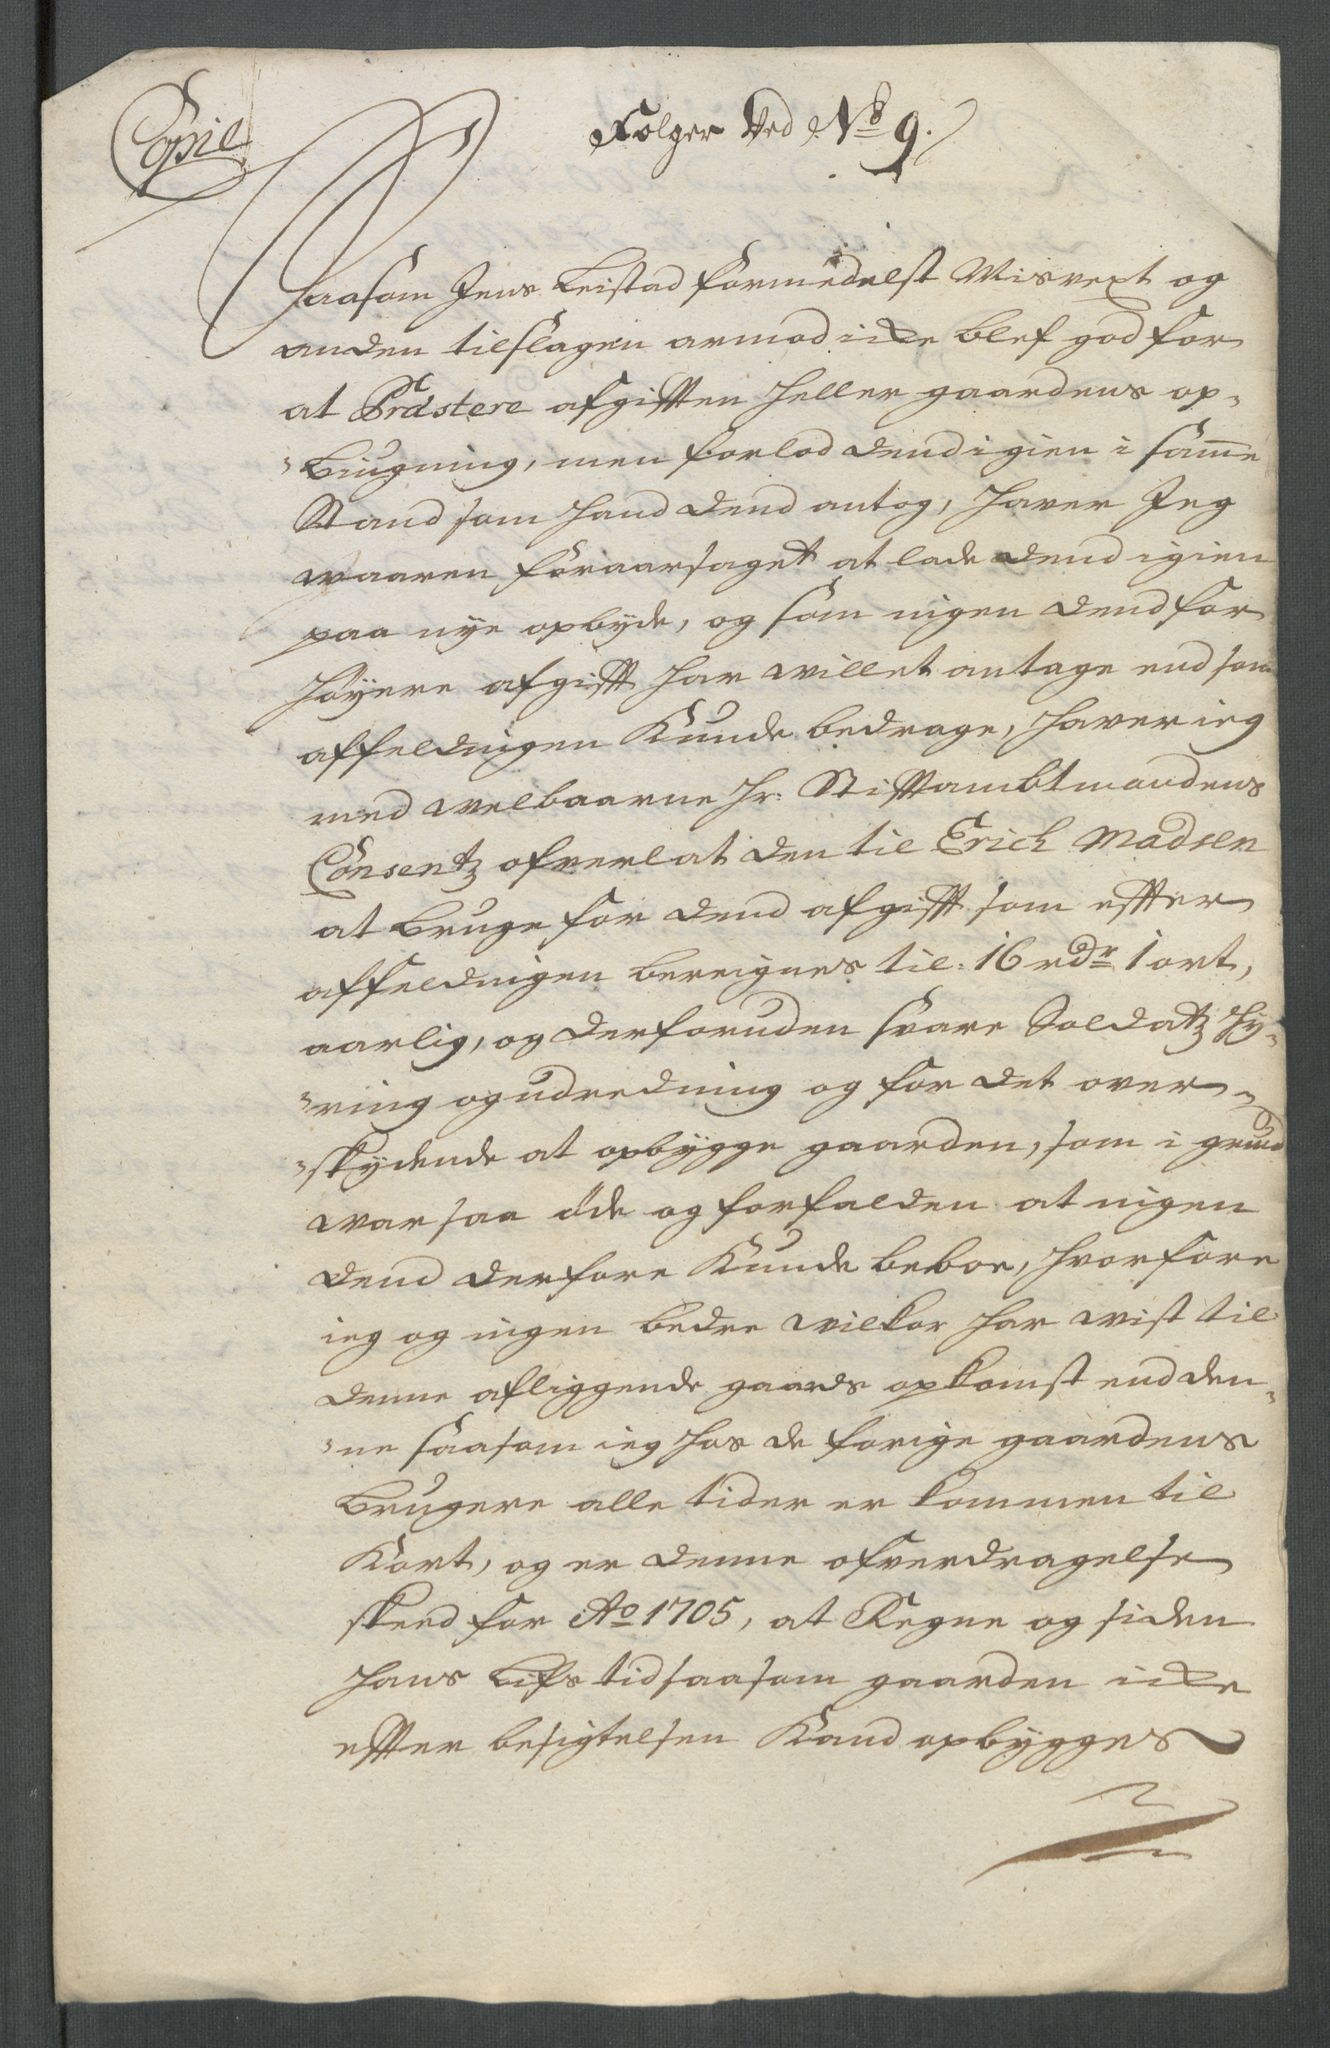 Copie
Følger Ved No 9.
Saasom Jens Leistad formedelst Misvext og
anden tilslagen armod icke blef god for
at Præstere afgifften heller gaardens op-
-biugning, men forlod dend igien i samme
Stand som hand dend antog, haver Jeg
waaren foraarsaget at lade dend igien
paa nye opbyde, og som ingen dend for
høyere afgifft har willet antage end som
affeldingen Kunde bedrage, haver ieg
med welbaarne Hr: Stifftambtmandens
Consentz ofverlat den til Erich Madsen
at bruge for dend afgifft som effter
affeldingen bereignes til: 16 rdr 1 ort,
aarlig, og derforuden svare Soldatz Hy-
-ring og udredning og for det over-
-skydende at opbygge gaarden, som i grund
war saa øde og forfalden at ingen
dend derfore Kunde beboe, hvorfore
ieg og ingen bedre wilkor har wist til
denne afliggende gaards opkomst end den-
-ne saasom ieg hos de forige gaardens
brugere alle tider er kommen til
Kort, og er denne ofverdragelse
skeed for Ao 1705, at Regne og siden
hans Lifs tid saasom gaarden icke
effter besigtelsen Kand opbygges